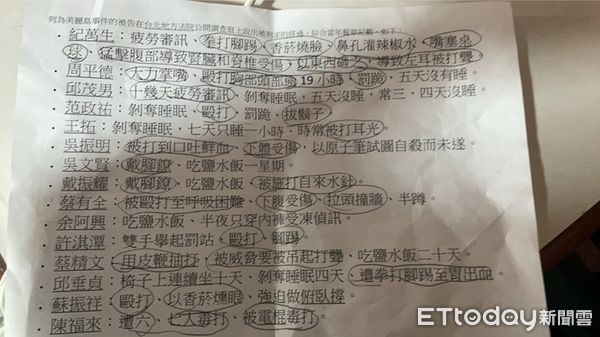 列為美麗島事件的被告在台北地方法院公開調查庭上說出被刑求的經過，綜合當年報章記載，如下：
· 紀萬生：疲勞審訊、拳打腳踢、香菸燒臉、鼻孔灌辣椒水、嘴塞桌
球、猛擊腹部導致腎臟和脊椎受傷、以東西砸之，導致左耳被打聾
· 周平德：大力掌嘴、毆打胸部頭部 19小時、罰跪、五天沒有睡。
· 邱茂男：十幾天疲勞審訊、剝奪睡眠，五天沒睡，常三、四天沒睡。
· 范政祐：剝奪睡眠、毆打、罰跪、拔鬍子
· 王拓：剝奪睡眠，七天只睡一小時、時常被打耳光。
· 吳振明：被打到口吐鮮血、下體受傷，以原子筆試圖自殺而未遂。
· 吳文賢：戴腳鐐、吃鹽水飯一星期。
· 戴振耀：戴腳鐐、剝奪睡眠、被施打自來水針。
· 蔡有全：被毆打至呼吸困難、下腹受傷、拉頭撞牆、半蹲。
· 余阿興：吃鹽水飯、半夜只穿內褲受凍偵訊。
· 許淇潭：雙手舉起罰站、毆打、腳踢。
· 蔡精文：用皮鞭抽打、被威脅要被吊起打聾、吃鹽水飯二十天。
· 邱垂貞：椅子上連續坐十天、剝奪睡眠四天、遭拳打腳踢至胃出血。
· 蘇振祥：毆打、以香菸燻眼、強迫做俯臥撐。
· 陳福來：遭六、七人毒打、被電棍毒打。
ETtoday新聞雲